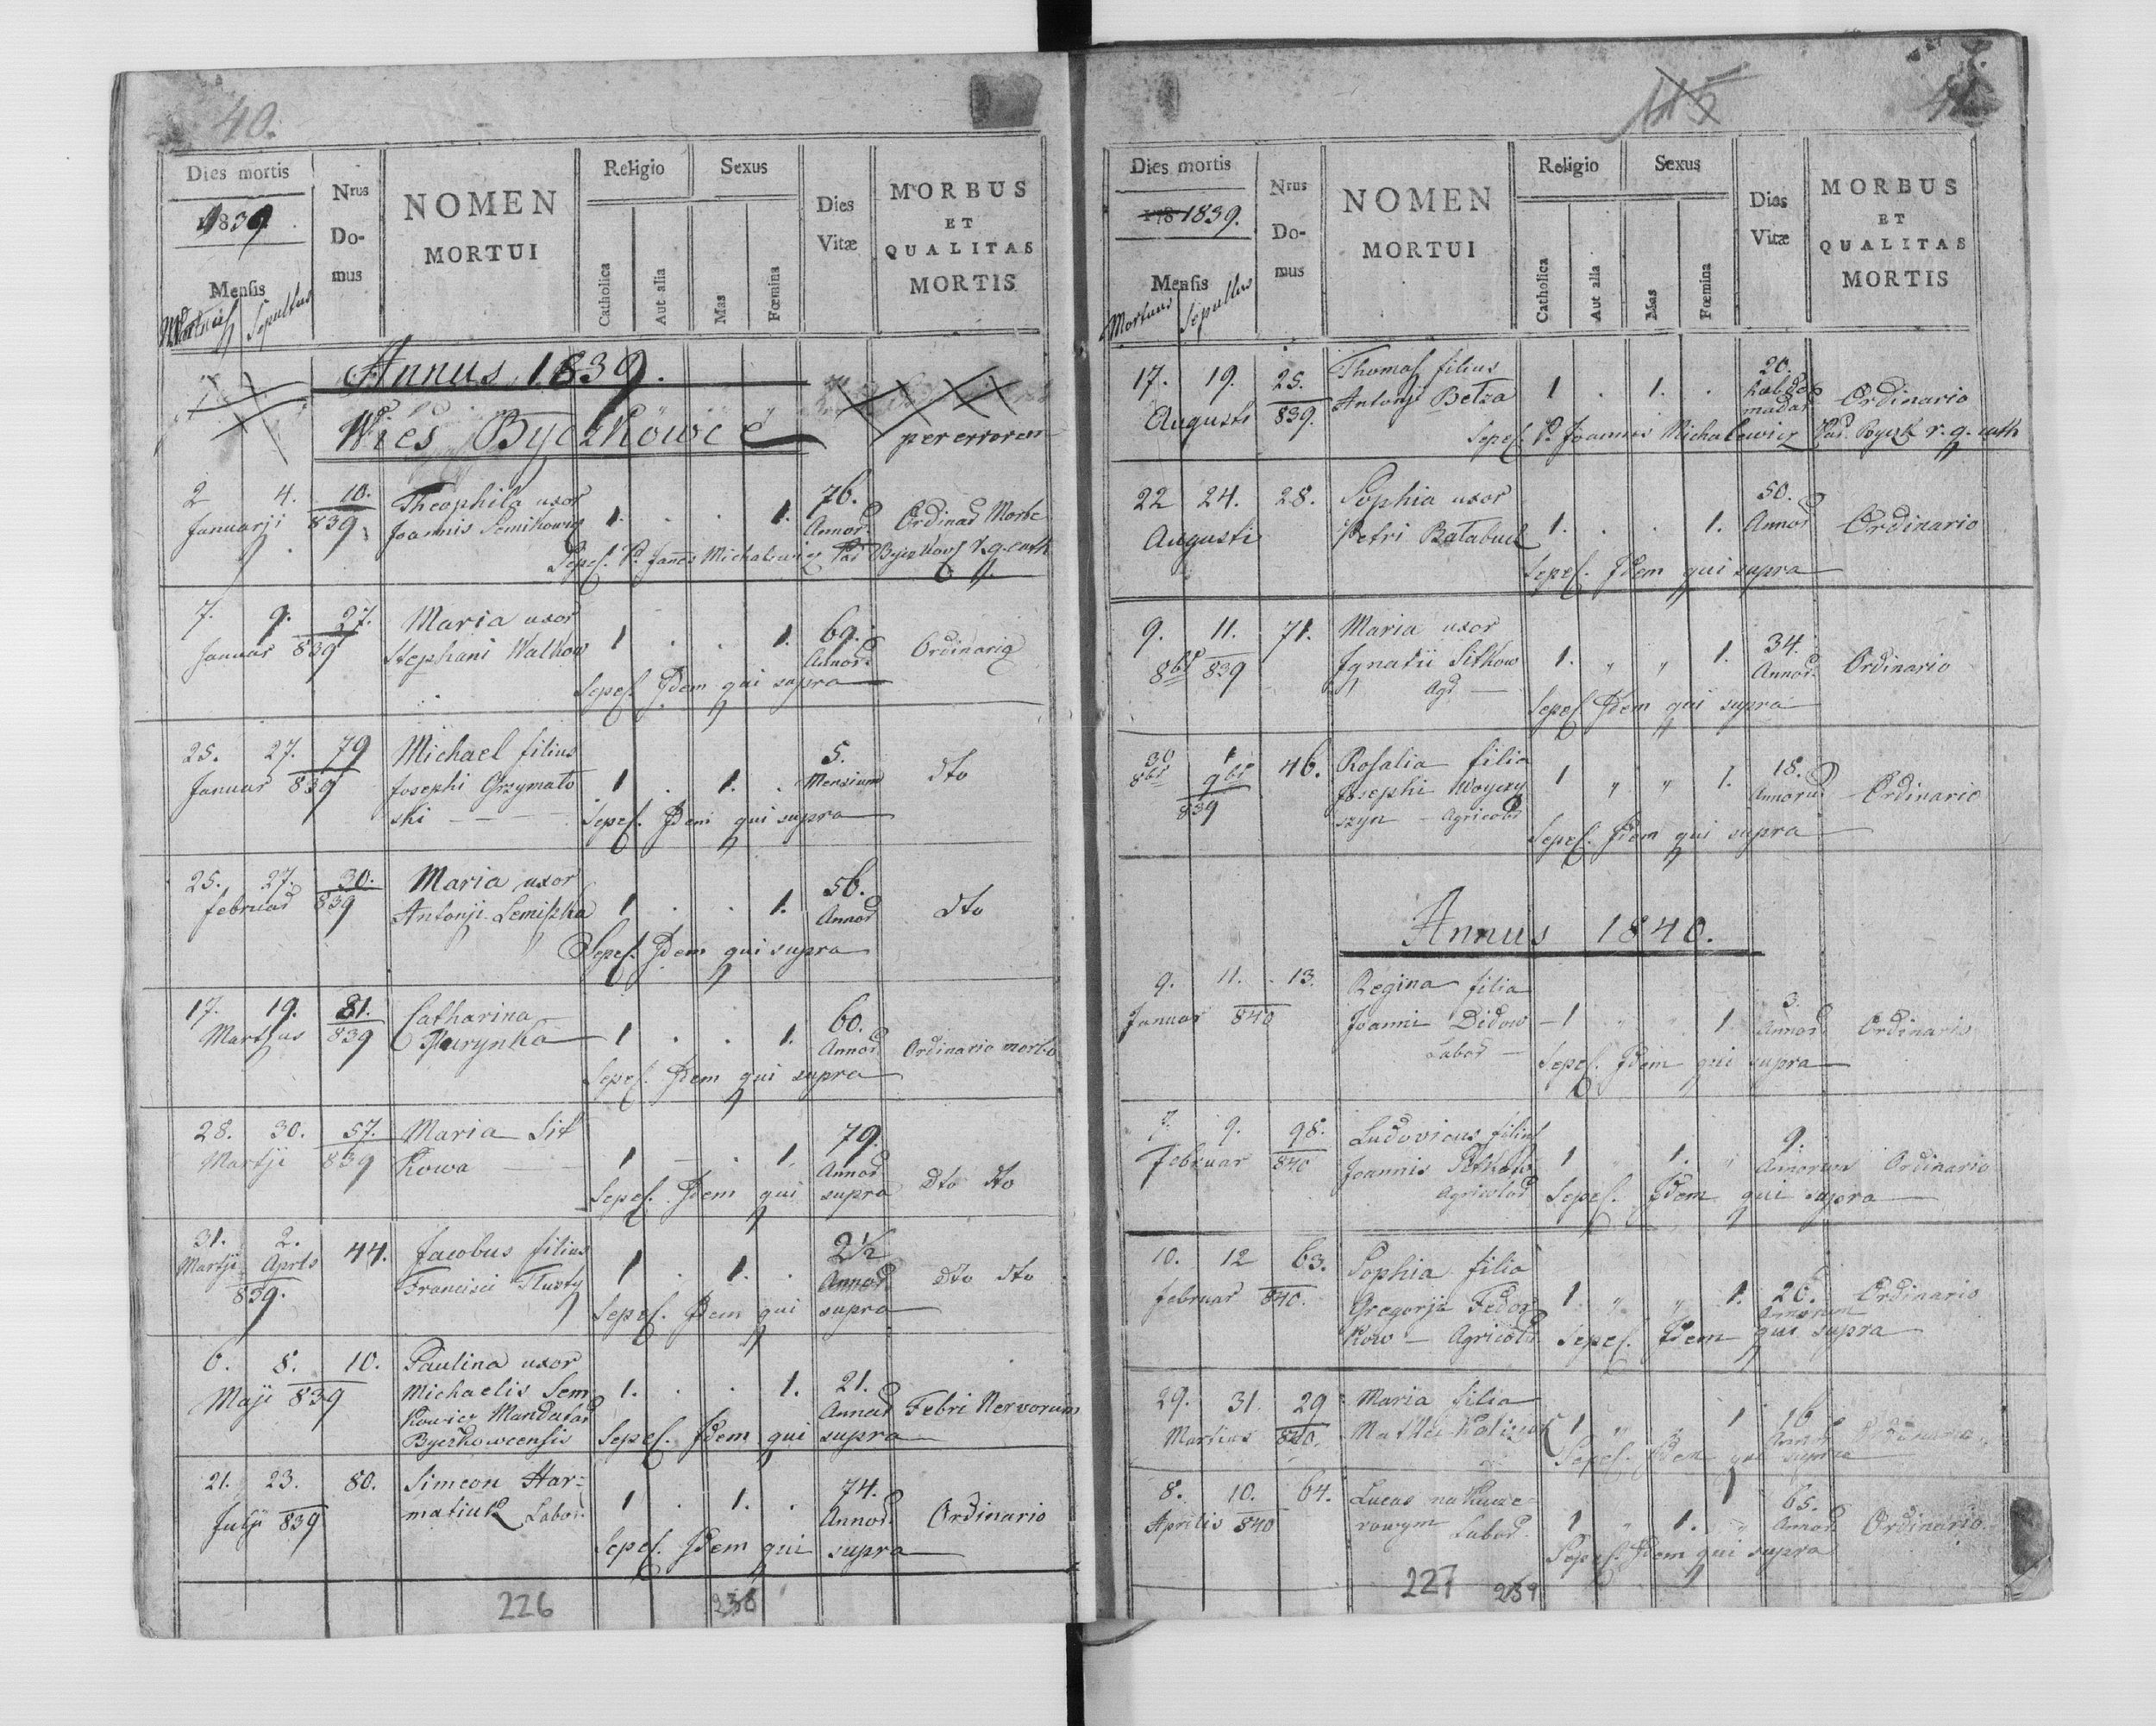 40.
Dies mortis
1839
Mensis
Mortuus Sepultus
Nrus
Do-
mus
NOMEN
MORTUI
Religio
Catholica
Aut alia
Sexus
Mas
Fœmina
Dies
Vitæ
MORBUS
ET
QUALITAS
MORTIS
Annus 1839.
Wieś Byczkowce
per errorem
2 4. 10. Theophila uxor 76.
Januarji 839 Joannis Semikowicz 1. . . 1. Annor. Ordinar Morbo
Sepel. P. Joanes Michalewicz Par Byczkow r. g. cath
7. 9. 27. Maria uxor 69.
Januar 839 Stephani Walkow 1 . . 1. Annor. Ordinario
Sepel. Idem qui supra
25. 27. 79 Michael filius 5.
Januar 839 Josephi Grzymało 1 . 1. . Mensium dto
ski
Sepel. Idem qui supra
25. 27. 30. Maria uxor 56.
februar 839 Antonji Lemiszka 1 . . 1. Annor dto
Sepel. Idem qui supra
17. 19. 81. Catharina 60.
Martius 839 1 . . 1. Annor Ordinario morbo
Sepel. Idem qui supra
28. 30. 57. Maria Sit 79.
Martji 839 kowa 1 . 1. Annor dto dto
Sepel. Idem qui supra
31. 2. 44. Jacobus filius 2½
Martji Aprls Francisci Tłusty 1 . 1. . Annor. dto dto
839.
Sepel. Idem qui supra
6. 8. 10. Paulina uxor
Maji 839 Michaelis Sem 1. . . 1. 21.
kowicz Mandatar Annor Febri Nervorum
Byczkowcensis Sepel. Idem qui supra
21. 23. 80. Simeon Har= 74.
Julji 839 matiuk Labor. 1 . 1. . Annor. Ordinario
Sepel. Idem qui supra
226 238
115
41
Dies mortis
178 1839.
Mensis
Mortuus Sepultus
Nrus
Do-
mus
NOMEN
MORTUI
Religio
Catholica
Aut alia
Sexus
Mas
Fœmina
Dies
Vitæ
MORBUS
ET
QUALITAS
MORTIS
17. 19. 25. Thomas filius 20.
Augusti 839. Antonji Betza 1 . 1. . hebdo
madar Ordinario
Sepel. P. Joannes Michalewicz Par. r. g. cath
22 24. 28. Sophia uxor 50.
Augusti Petri Bałabuch 1. . . 1. Annor Ordinario
Sepel. Idem qui supra
9. 11. 71. Maria uxor 34.
8br 839 Ignatii Sitkow 1. " " 1. Annor. Ordinario
Agr
Sepel. Idem qui supra
30 1 46. Rosalia filia 18.
8br 9br Josephi Woyczy 1 " " 1. Annorum Ordinario
839 szyn Agricola
Sepel. Idem qui supra
Annus 1840.
9. 11. 13. Regina filia 3.
Januar 840 Joanni Didow 1 " " 1 Annor Ordinario
Labor
Sepel. Idem qui supra
7. 9. 98. Ludovicus filius 9.
Februar 840 Joannis Sitkow 1 " 1. " Annorum Ordinario
Agricolar Sepel. Idem qui supra
10. 12 63. Sophia filia
februar 840. Gregorji Fedor 1. " " 1. 26. Ordinario
kow Agricola Annorum
Sepel. Idem qui supra
29. 31. 29 Maria filia 16
Martius 840. Mathei 1 " " 1 Annor
Sepel. Idem qui supra
8. 10. 64. Lucas na Kucze= 65.
Aprilis 840 rowym Labor. 1 " 1. " Annor Ordinario
Sepel. Idem qui supra
227 239